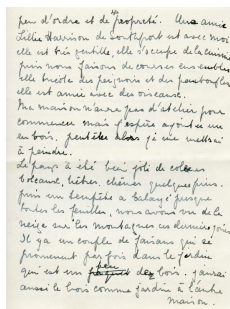 4
peu d'ordre et de propreté. Une amie
Lillie Harrison de Southport est avec moi
elle est très gentille, elle s'occupe de la cuisine
puis nous faisons de courses ensembles
elle tricote des peignoirs et des pantoufles
elle est amie avec des oiseaux.
Ma maison n'aura pas d'atelier pour
commencer mais j'espère ajouter une
en bois. peut être alors je me mettrai
à peindre.
Le pays a été bien joli de coleurs
bouleaux, hêtres, chênes quelques pins.
puis une tempête a balayé presque
toutes les feuilles, nous avons vu de la
neige sur les montagnes ces derniers jours
Il y a un couple de faisans qui se
promenent parfois dans le jardin
qui est un peu de bois. j'aurai
aussi le bois comme jardin à l'autre
maison.